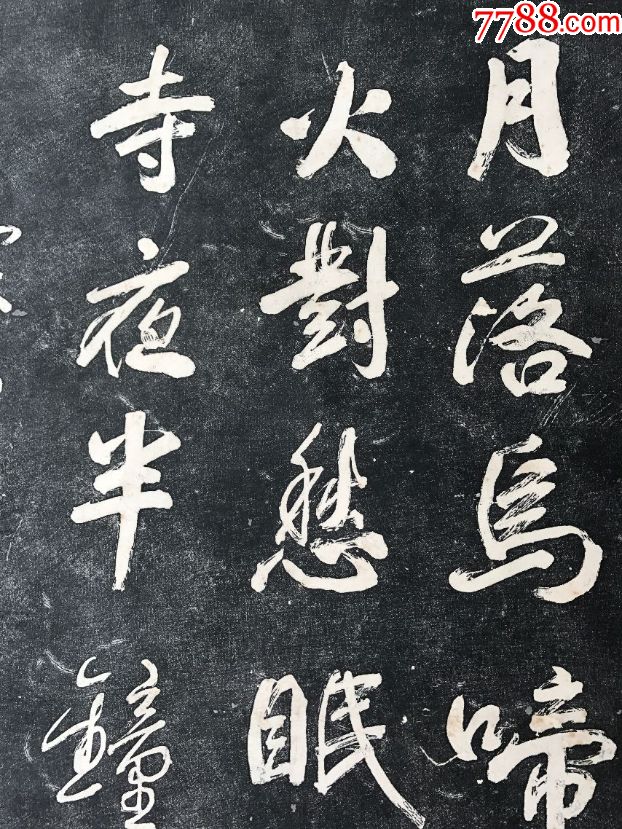 7788.com
月落烏啼
火對愁眠
寺夜半鐘